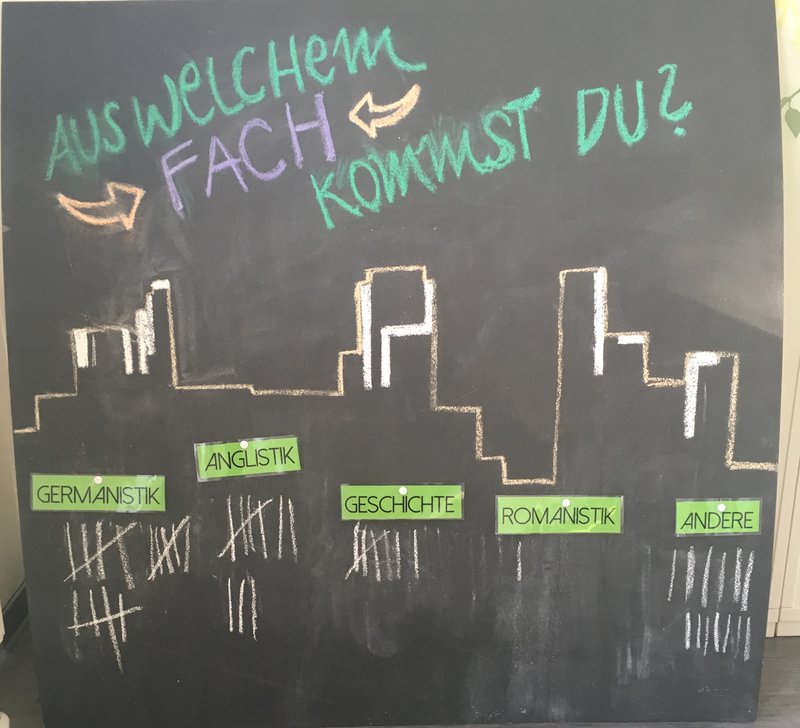 AUS WELCHEM
FACH
KOMMST DU?
GERMANISTIK
ANGLISTIK
GESCHICHTE
ROMANISTIK
ANDERE